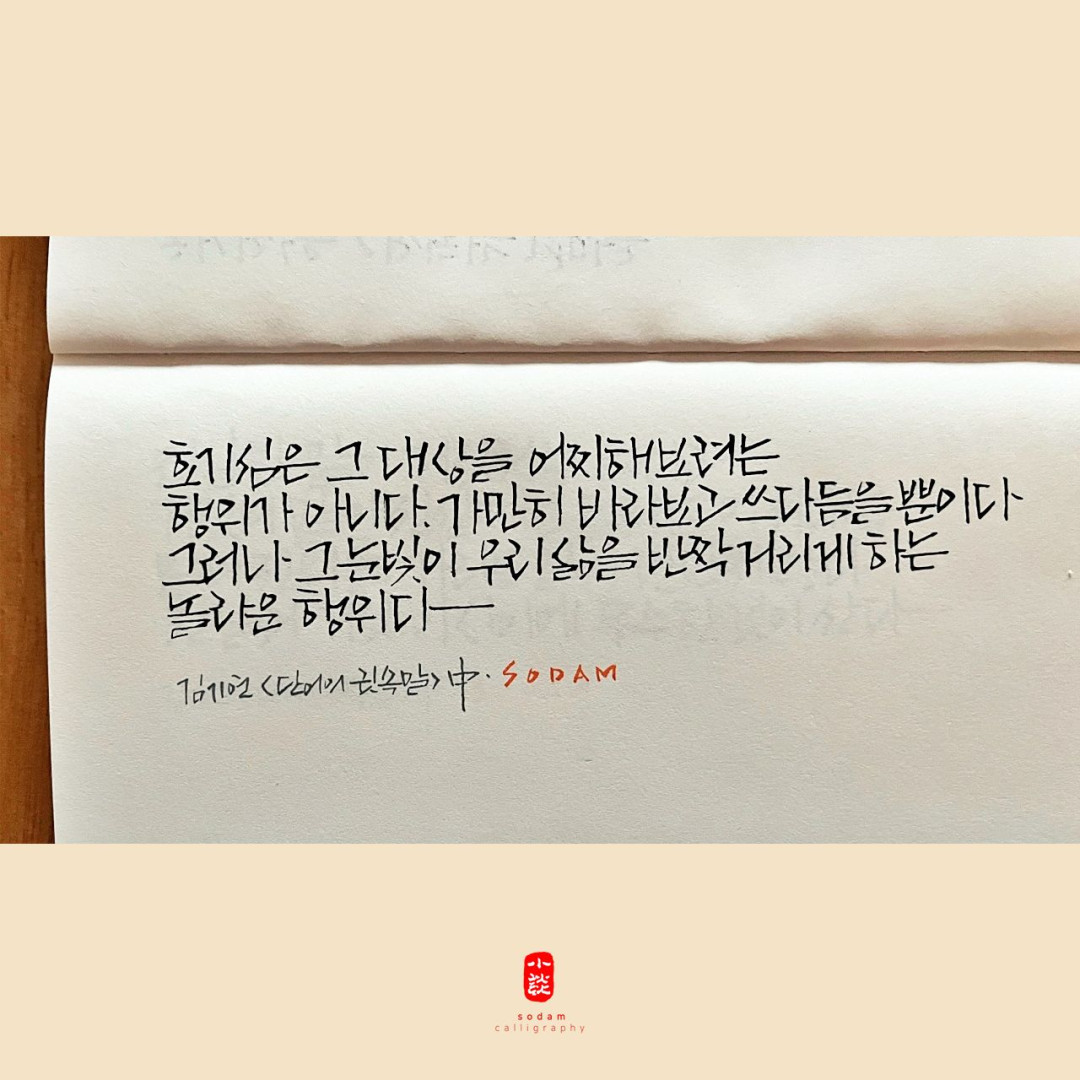 호기심은 그 대상을 어찌해보려는
행위가 아니다. 가만히 바라보고 쓰다듬을 뿐이다.
그러나 그 눈빛이 우리 삶을 반짝거리게 하는
놀라운 행위다
김기현 <단어의 귓속말> 中. SODAM
小談
sodam
calligraphy